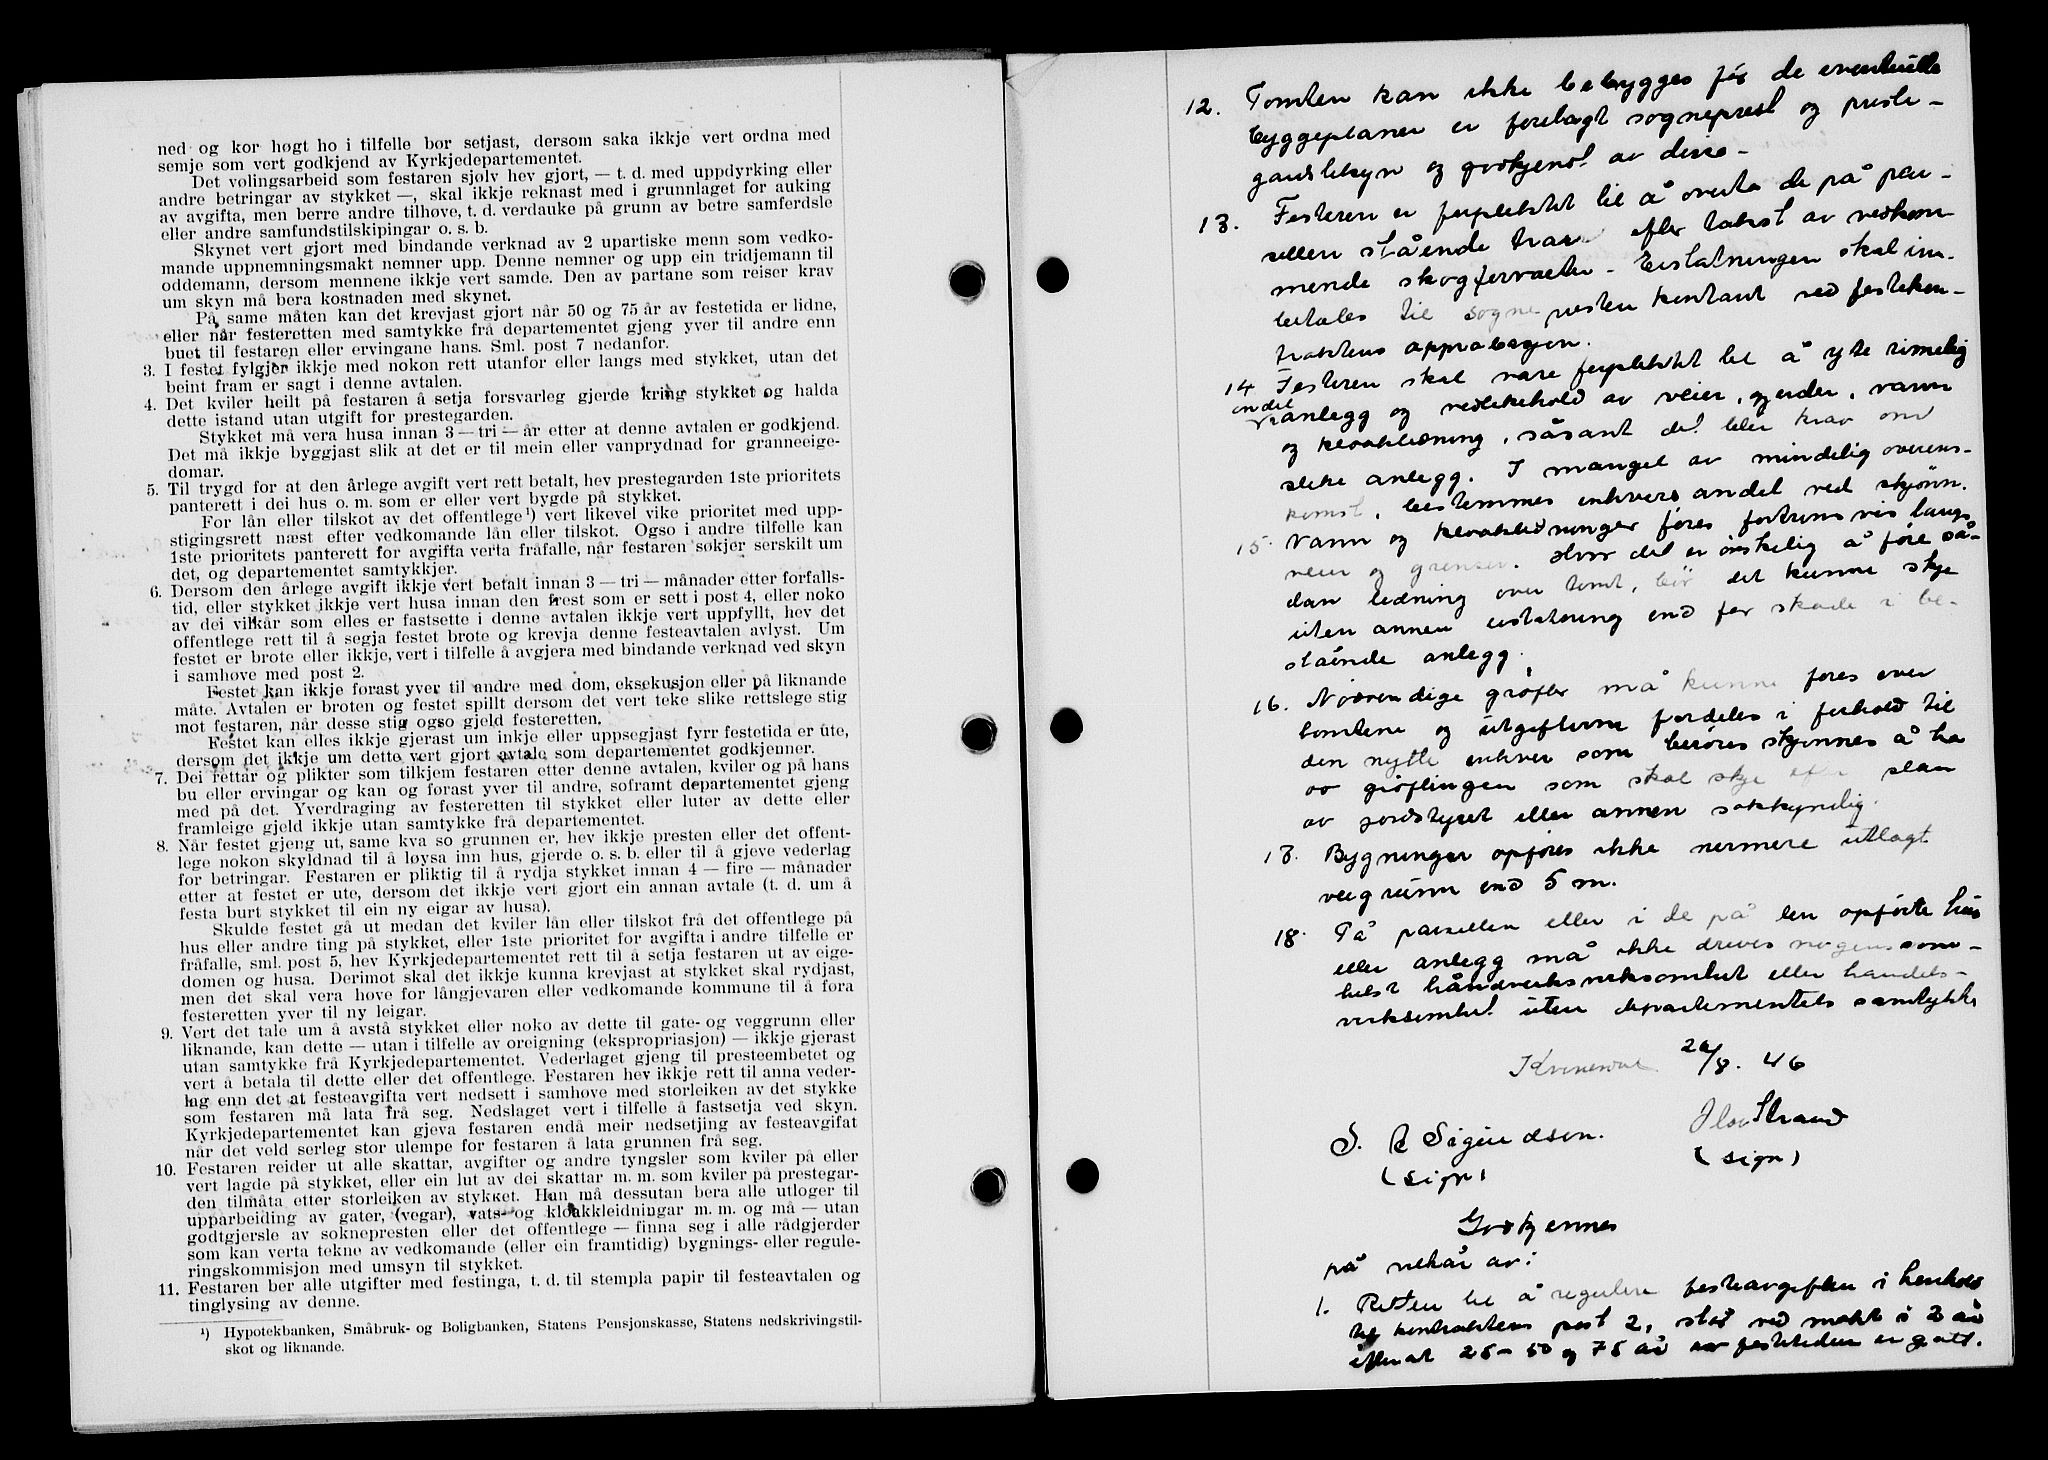 ned og kor høgt ho i tilfelle bør setjast, dersom saka ikkje vert ordna med
semje som vert godkjend av Kyrkjedepartementet.
Det vølingsarbeid som festaren sjølv hev gjort, — t. d. med uppdyrking eller
andre betringar av stykket —, skal ikkje reknast med i grunnlaget for auking
av avgifta, men berre andre tilhøve, t. d. verdauke på grunn av betre samferdsle
eller andre samfundstilskipingar o. s. b.
Skynet vert gjort med bindande verknad av 2 upartiske menn som vedko-
mande uppnemningsmakt nemner upp. Denne nemner og upp ein tridjemann til
oddemann, dersom mennene ikkje vert samde. Den av partane som reiser krav
um skyn må bera kostnaden med skynet.
På same måten kan det krevjast gjort når 50 og 75 år av festetida er lidne,
eller når festeretten med samtykke frå departementet gjeng yver til andre enn
buet til festaren eller ervingane hans. Sml. post 7 nedanfor.
3. I festet fylgjer ikkje med nokon rett utanfor eller langs med stykket, utan det
beint fram er sagt i denne avtalen.
4. Det kviler heilt på festaren å setja forsvarleg gjerde kring stykket og halda
dette istand utan utgift for prestegarden.
Stykket må vera husa innan 3 — tri — år etter at denne avtalen er godkjend.
Det må ikkje byggjast slik at det er til mein eller vanprydnad for granneeige-
domar.
5. Til trygd for at den årlege avgift vert rett betalt, hev prestegarden 1ste prioritets
panterett i dei hus o. m. som er eller vert bygde på stykket.
For lån eller tilskot av det offentlege¹) vert likevel vike prioritet med upp-
stigingsrett næst efter vedkomande lån eller tilskot. Ogso i andre tilfelle kan
1ste prioritets panterett for avgifta verta fråfalle, når festaren søkjer serskilt um
det, og departementet samtykkjer.
6. Dersom den årlege avgift ikkje vert betalt innan 3 — tri — månader etter forfalls-
tid, eller stykket ikkje vert husa innan den frest som er sett i post 4, eller noko
av dei vilkår som elles er fastsette i denne avtalen ikkje vert uppfyllt, hev det
offentlege rett til å segja festet brote og krevja denne festeavtalen avlyst. Um
festet er brote eller ikkje, vert i tilfelle å avgjera med bindande verknad ved skyn
i samhøve med post 2.
Festet kan ikkje førast yver til andre med dom, eksekusjon eller på liknande
måte. Avtalen er broten og festet spillt dersom det vert teke slike rettslege stig
mot festaren, når desse stig ogso gjeld festeretten.
Festet kan elles ikkje gjerast um inkje eller uppsegjast fyrr festetida er ute,
dersom det ikkje um dette vert gjort avtale som departementet godkjenner.
7. Dei rettar og plikter som tilkjem festaren etter denne avtalen, kviler og på hans
bu eller ervingar og kan og førast yver til andre, soframt departementet gjeng
med på det. Yverdraging av festeretten til stykket eller luter av dette eller
framleige gjeld ikkje utan samtykke frå departementet.
8. Når festet gjeng ut, same kva so grunnen er, hev ikkje presten eller det offent-
lege nokon skyldnad til å løysa inn hus, gjerde o. s. b. eller til å gjeve vederlag
for betringar. Festaren er pliktig til å rydja stykket innan 4 — fire — månader
etter at festet er ute, dersom det ikkje vert gjort ein annan avtale (t. d. um å
festa burt stykket til ein ny eigar av husa).
Skulde festet gå ut medan det kviler lån eller tilskot frå det offentlege på
hus eller andre ting på stykket, eller 1ste prioritet for avgifta i andre tilfelle er
fråfalle, sml. post 5, hev Kyrkjedepartementet rett til å setja festaren ut av eige-
domen og husa. Derimot skal det ikkje kunna krevjast at stykket skal rydjast,
men det skal vera høve for långjevaren eller vedkomande kommune til å føra
festeretten yver til ny leigar.
9. Vert det tale um å avstå stykket eller noko av dette til gate- og veggrunn eller
liknande, kan dette — utan i tilfelle av oreigning (ekspropriasjon) — ikkje gjerast
utan samtykke frå Kyrkjedepartementet. Vederlaget gjeng til presteembetet og
vert å betala til dette eller det offentlege. Festaren hev ikkje rett til anna veder-
lag enn det at festeavgifta vert nedsett i samhøve med storleiken av det stykke
som festaren må lata frå seg. Nedslaget vert i tilfelle å fastsetja ved skyn.
Kyrkjedepartementet kan gjeva festaren endå meir nedsetjing av festeavgifat
når det veld serleg stor ulempe for festaren å lata grunnen frå seg.
10. Festaren reider ut alle skattar, avgifter og andre tyngsler som kviler på eller
vert lagde på stykket, eller ein lut av dei skattar m. m. som kviler på prestegar-
den tilmåta etter storleiken av stykket. Han må dessutan bera alle utloger til
upparbeiding av gater, (vegar), vats- og kloakkleidningar m. m. og må — utan
godtgjersle av soknepresten eller det offentlege — finna seg i alle rådgjerder
som kan verta tekne av vedkomande (eller ein framtidig) bygnings- eller regule-
ringskommisjon med umsyn til stykket.
11. Festaren ber alle utgifter med festinga, t. d. til stempla papir til festeavtalen og
tinglysing av denne.
¹) Hypotekbanken, Småbruk- og Boligbanken, Statens Pensjonskasse, Statens nedskrivingstil-
skot og liknande.
12. Tomten kan ikke bebygges før de eventuelle
byggeplaner er forelagt sogneprest og preste-
gaardstilsyn og godkjent av disse-
13. Festeren er forpliktet til å overta de på par-
sellen stående trær efter takst av vedkom-
mende skogforvalter - Erstatningen skal inn-
betales til sognepresten kontant ved festekon-
traktens approbasjon.
14 Festeren skal være forpliktet til å yte rimelig
andel
anlegg og vedlikehold av veier, gjerder, vann
og kloakkledning, såsant det blir krav om
slike anlegg. I mangel av mindelig overens-
komst, bestemmes enhvers andel ved skjønn.
15. Vann og kloakkledninger føres fortrinsvis langs
veier og grenser. Hvor det er ønskelig å føre så-
dan ledning over tomt, bør det kunne skje
uten annen erstatning end for skade i be-
stående anlegg.
16. Nødvendige grøfter må kunne føres over
tomtene og utgifterne fordeles i forhold til
den nytte enhver som berøres skjønnes å ha
av grøftingen som skal skje efter plan
av jordstyret eller annen sakkyndig.
17. Bygninger opføres ikke nermere utlagt
veigrunn end 5 m.
18. På parsellen eller i de på den opførte hus
eller anlegg må ikke drives nogensom-
helst håndverksvirksomhet eller handels-
virksomhet uten departementets samtykke
26/8. 46
S. A Sigurdsen.
Olav Strand
(sign)
(sign)
Godkjennes
på vilkår av:
1. Retten til å regulere festeavgiften i henhold
til kontraktens post 2, står ved makt i 2 år
efter at 25 - 50 og 75 år av festetiden er gått.